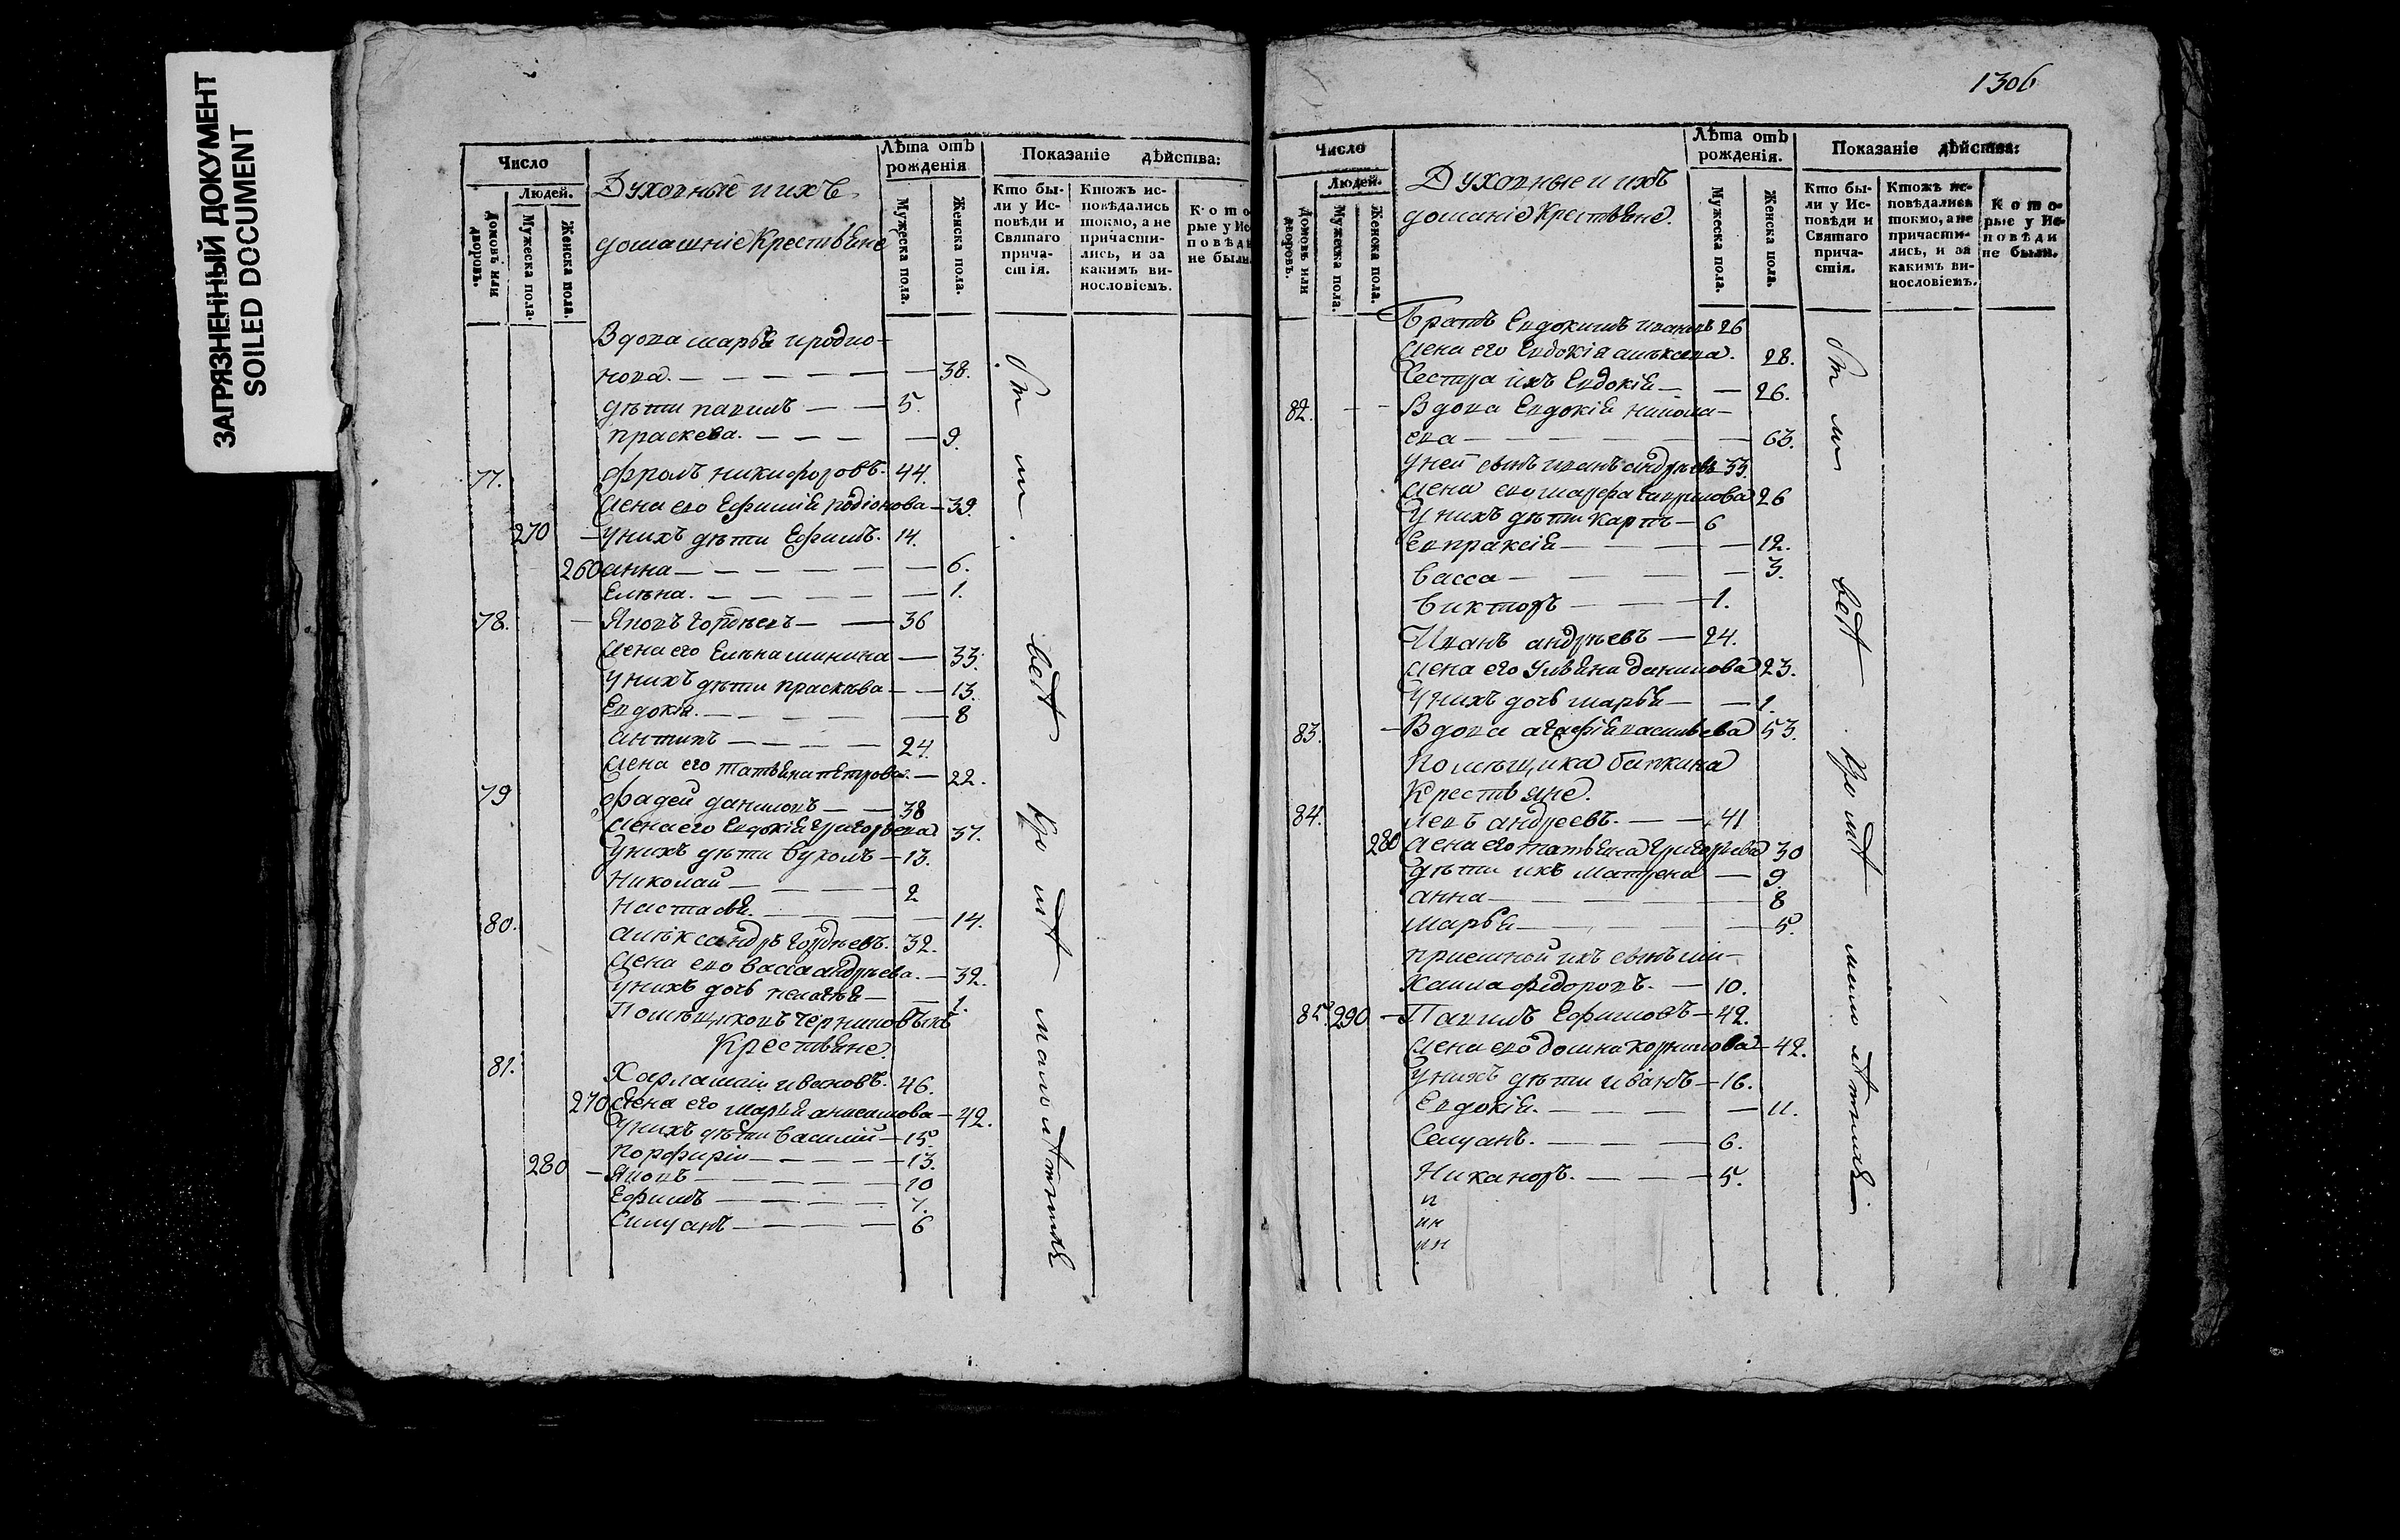 ЗАГРЯЗНЕННЫЙ ДОКУМЕНТ
SOILED DOCUMENT
Число
Людей.
домовъ или дворовъ.
Мужеска пола.
Женска пола.
Духовные и ихъ
домашніе Крестьяне
Лѣта отъ
рожденія
Мужеска пола.
Женска пола.
Показаніе дѣйства:
Кто бы-
ли у Ис-
повѣди и
Святаго
прича-
стія.
Ктожъ ис-
повѣдались
токмо, а не
причасти-
лись, и за
какимъ ви-
нословіемъ.
Кото
рые у Ис
повѣди
не были.
Вдова марья иродио-
нова. 38.
дѣти павилъ 5.
праскева. 9.
77. фролъ никифоровъ. 44.
жена ево Ефимія родіонова 39.
270 У нихъ дѣти Ефимъ. 14.
260 анна 6.
Елѣна. 1.
78. Яковъ гордѣевъ 36
жена его Елѣна минина 33.
У нихъ дѣти праскѣва 13.
Евдокія. 8
антипъ 24.
жена его татьяна петрова. 22.
79 фадей даниловъ 38
жена его Евдокія григорьева 37.
У нихъ дѣти вуколъ 13.
Николай 2
настасья. 14.
80. алѣксандръ гордѣевъ. 32.
жена ево васса андрѣева. 32.
У нихъ дочь пелагѣя 1.
Помѣщиковъ черниковыхъ
Крестьяне.
81. Харлампій ивановъ. 46.
270 жена его марья анисимова 42.
У нихъ дѣти василій 15.
порфирій 13.
280 Яковъ 10
Ефимъ 7.
Силуанъ 6
1306
Число
Людей.
домовъ или дворовъ.
Мужеска пола.
Женска пола.
Духовные и ихъ
домашніе Крестьяне.
Лѣта отъ
рожденія.
Мужеска пола.
Женска пола.
Показаніе дѣйства:
Кто бы-
ли у Ис-
повѣди и
Святаго
прича-
стія.
Ктожъ ис-
повѣдались
токмо, а не
причасти-
лись, и за
какимъ ви-
нословіемъ.
Кото-
рые у Ис-
повѣди
не были.
Братъ Евдокимъ ивановъ 26
жена его Евдокія алѣксеева. 28.
Сестра ихъ Евдокія 26.
82. Вдова Евдокія никола-
ева 63.
У ней сынъ иванъ андрѣевъ 33.
жена ево марфа гаврилова 26
У нихъ дѣти карпъ 6
Евпраксія 12.
васса 3.
викторъ 1.
Иванъ андрѣевъ 24.
жена его ульяна данилова 23.
У нихъ дочь марья 1.
83. Вдова агафія васильева 53.
Помѣщика бапкина
Крестьяне.
84. левъ андреевъ. 41
280 жена его татьяна григорьева 30
дѣти ихъ матрена 9.
анна 8
марья 5.
приемной ихъ сынъ ми-
хаила федоровъ. 10.
85. 290 Павилъ Ефимовъ 42.
жена ево домна корнилова 42.
У нихъ дѣти иванъ 16.
Евдокія. 11.
Силуанъ. 6.
Никаноръ. 5.